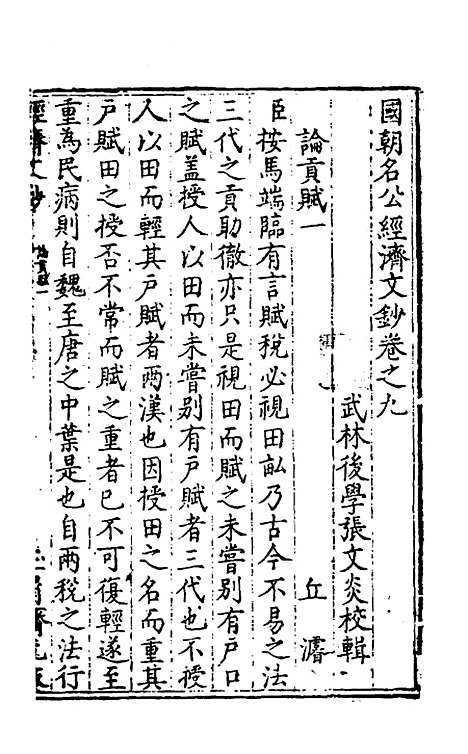 國朝名公經濟文鈔卷之九
武林後學張文炎校輯
論貢賦一
丘濬
臣按馬端臨有言賦稅必視田畝乃古今不易之法
三代之貢助徹亦只是視田而賦之未嘗別有戶口
之賦盖授人以田而未嘗别有戶賦者三代也不授
人以田而輕其戶賦者兩漢也因授田之名而重其
戶賦田之授否不常而賦之重者已不可復輕遂至
重為民病則自魏至唐之中葉是也自兩稅之法行
經濟文鈔